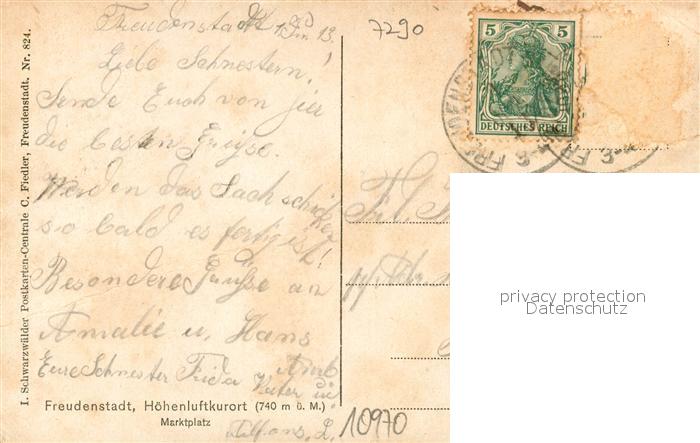 Freudenstadt 13.
7290
Liebe Schwestern!
Sende Euch von hier
die besten Grüße.
Werden das Sach schicken
so bald es fertig ist!
Besondere Grüße an
Amalie u. Hans
Eure Schwester Frida
10970
I. Schwarzwälder Postkarten-Centrale C. Fiedler, Freudenstadt. Nr. 824.
Freudenstadt, Höhenluftkurort (740 m ü. M.)
Marktplatz
5 5
DEUTSCHES REICH
Frl.
privacy protection
Datenschutz